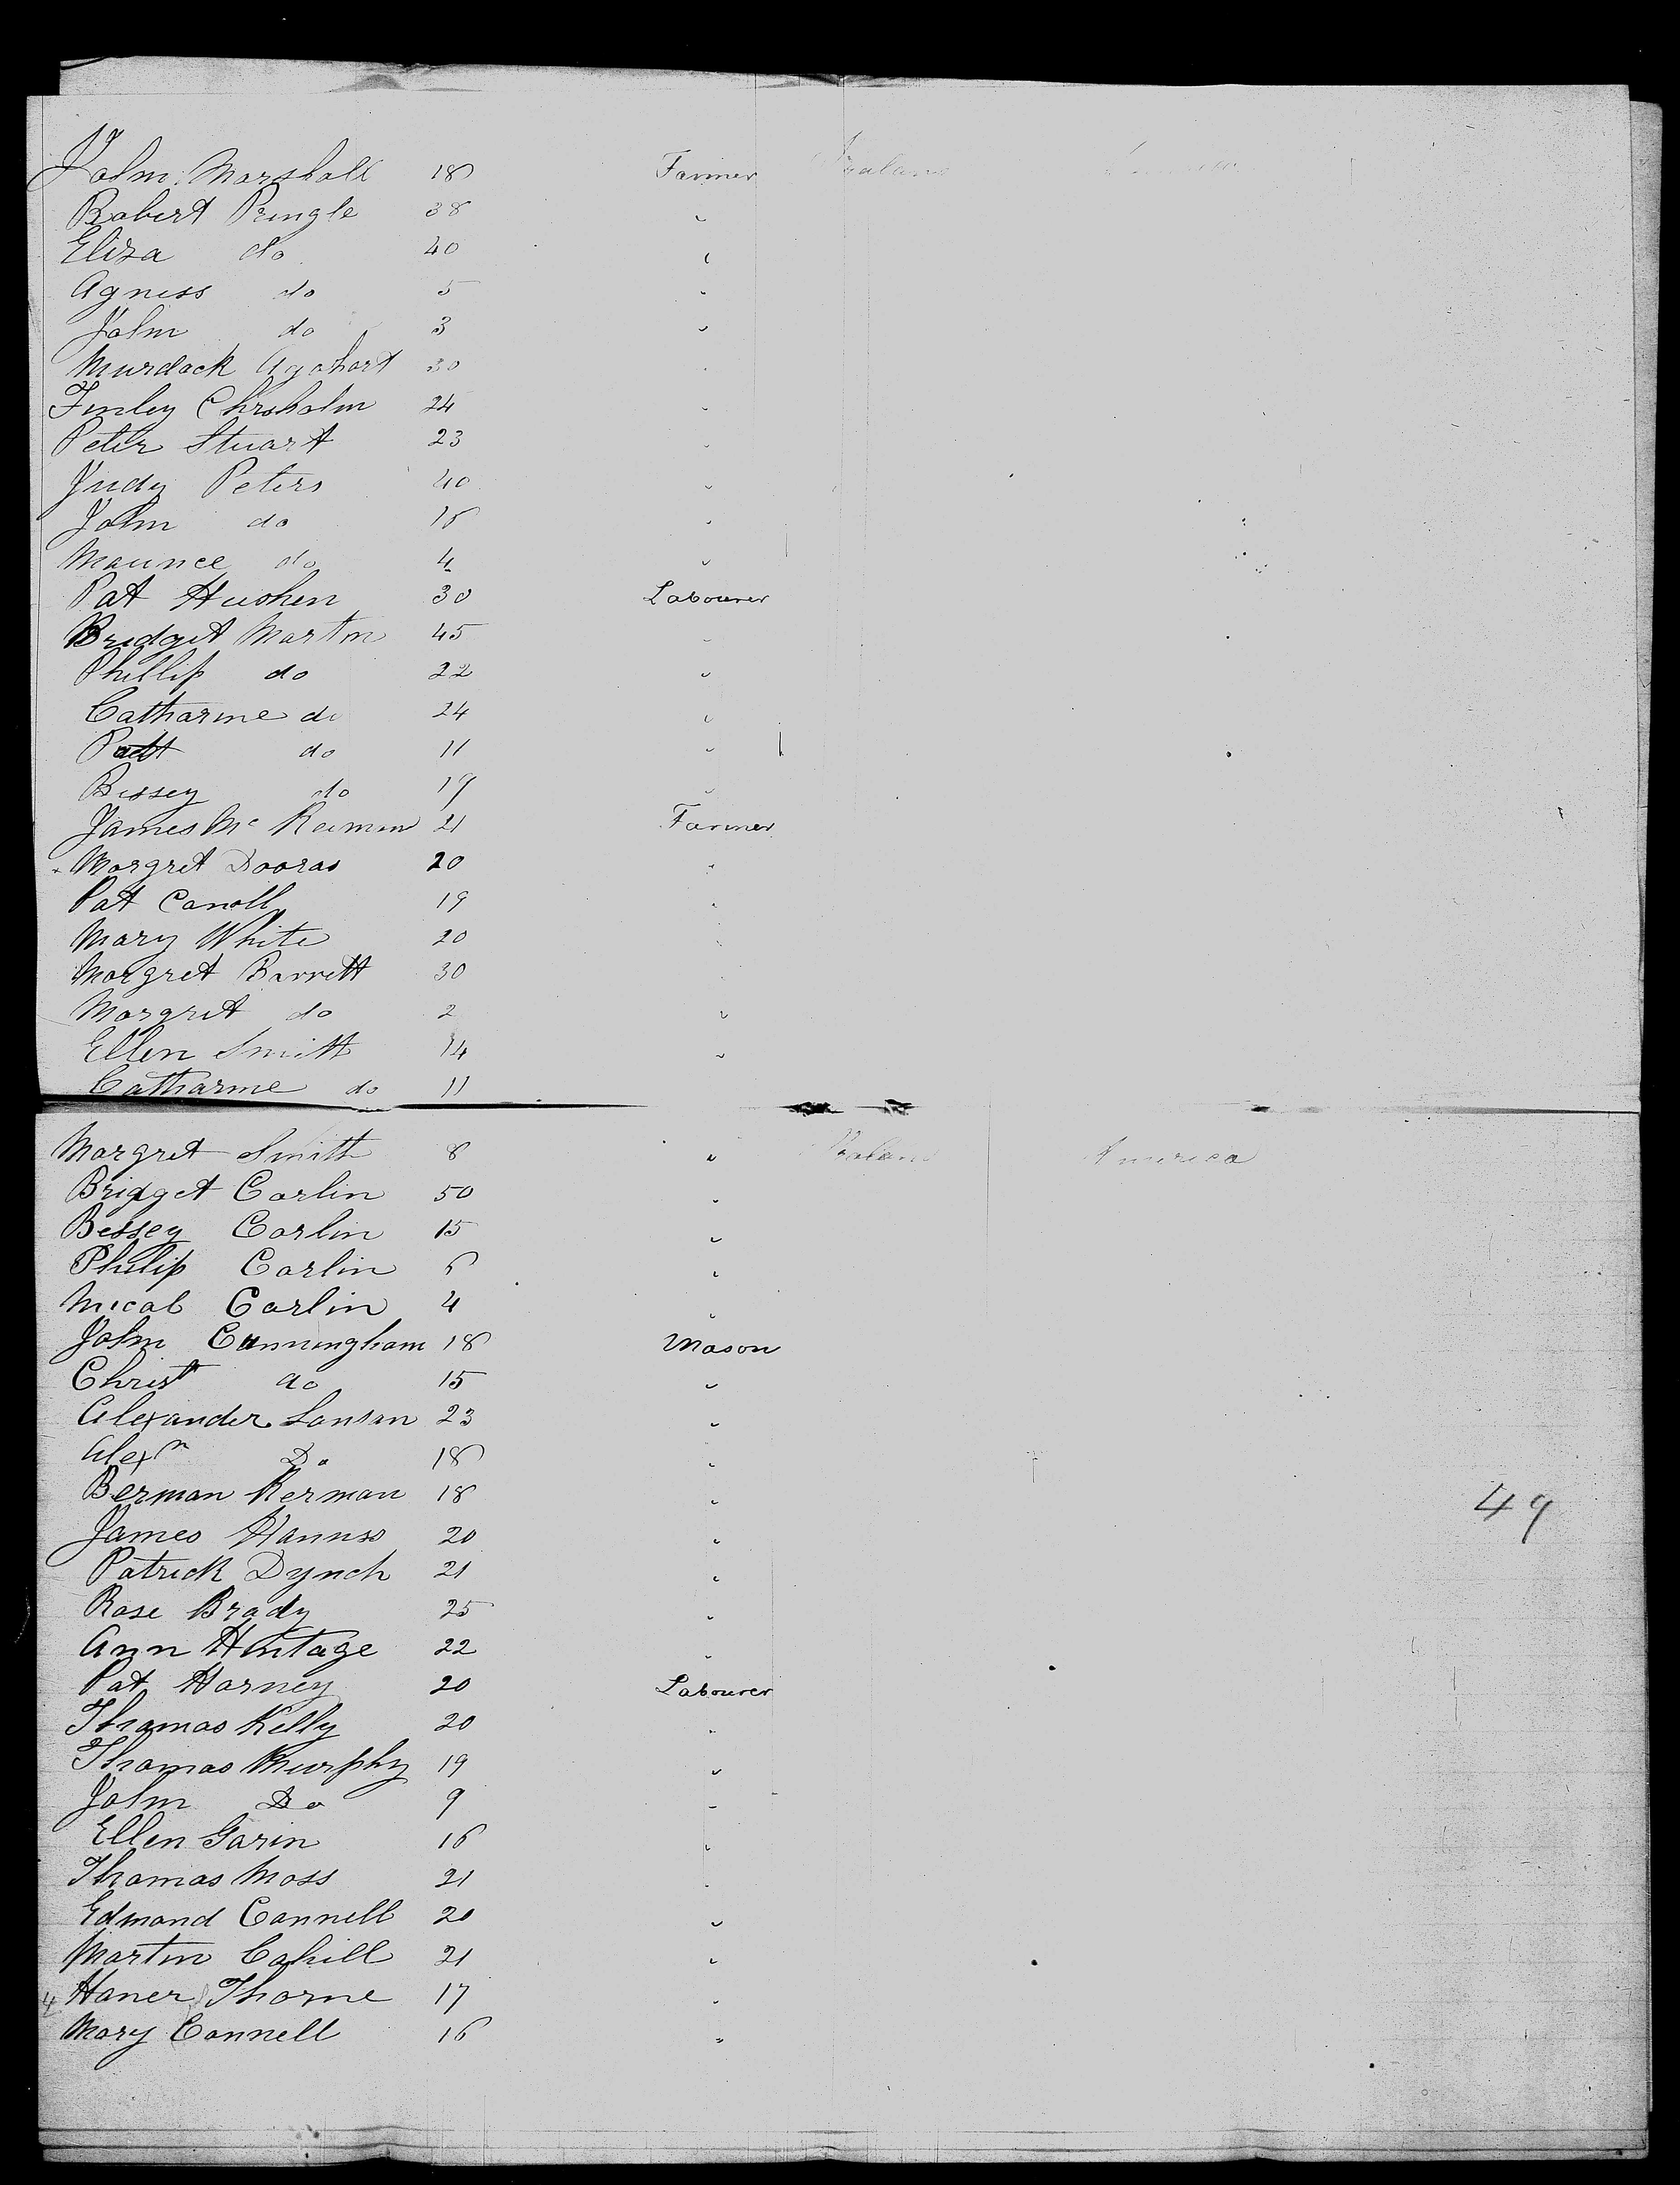 John Marshall 18 Farmer
Robert Pringle 38 "
Eliza do 40 "
Agness do 5 "
John do 3 "
Murdock 30 "
Finley Chrsholm 24 "
Peter Stuart 23 "
Judy Peters 40 "
John do 18 "
Maurice do 4 "
Pat 30 Labourer
Bridget Martin 45 "
Phillip do 22 "
Catharine do 24 "
Patt do 11 "
Bessey do 19 "
James Mc 21 Farmer
Margret Dooras 20 "
Pat Caroll 19 "
Mary White 20 "
Margret Barrett 30
Margret do 2 "
Ellen Smith 14 "
Catharine do 11
Margret Smith 8 " America
Bridget Carlin 50 "
Bessey Carlin 15 "
Philip Carlin 6 "
Mical Carlin 4 "
John Cunningham 18 Mason
Christ do 15 "
Alexander 23 "
Alexr Do 18 "
Berman Kerman 18 "
49
James Hannss 20 "
Patrick Dynch 21 "
Rose Brady 25 "
Ann Hintage 22 "
Pat Harney 20 Labourer
Thomas Kelly 20 "
Thomas Murphy 19 "
John Do 9 "
Ellen Garin 16 "
Thomas Moss 21 "
Edmond Connell 20 "
Martin Cahill 21 "
Haner Thorne 17 "
Mary Connell 16 "